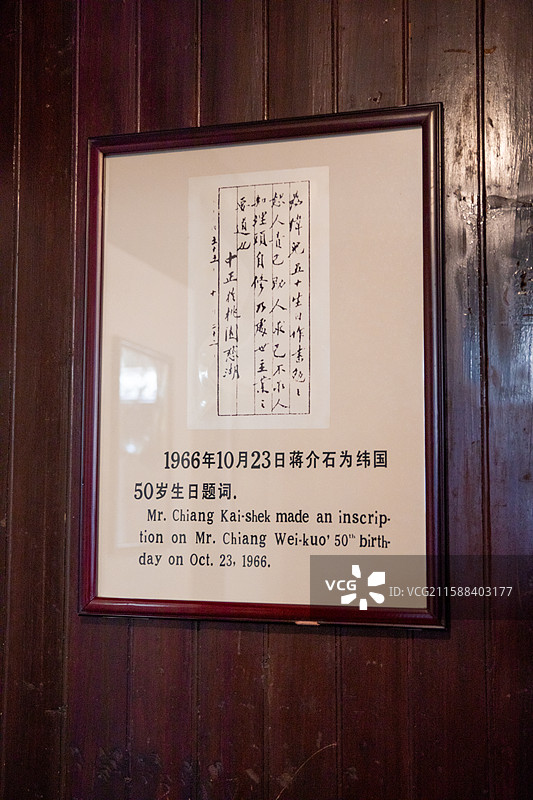 為緯兒五十生日作書勉之
恕人責己助人求己不求人
自修乃處世立業之
要道也
中正於桃園慈湖
1966年10月23日蒋介石为纬国
50岁生日题词.
Mr. Chiang Kai-shek made an inscrip-
tion on Mr. Chiang Wei-kuo' 50th birth-
day on Oct. 23, 1966.
VCG
ID:VCG211588403177